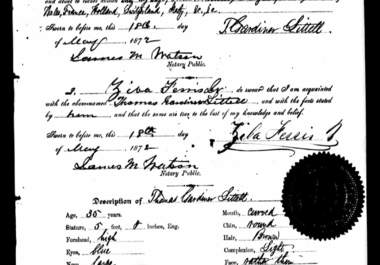 Wales, France, Holland, Switzerland, Italy, &c. &c.
Sworn to before me, this 18th day
of May 1872
T. Gardiner Littell
James M Watson
Notary Public.
I, Ziba Ferris Jr do swear that I am acquainted
with the above-named Thomas Gardiner Littell and with the facts stated
by him and that the same are true to the best of my knowledge and belief.
Sworn to before me, this 18th day
of May 1872
Ziba Ferris Jr
James M Watson
Notary Public.
Description of Thomas Gardiner Littell
Age, 35 years. Mouth, curved
Stature, 5 feet 8 inches, Eng. Chin, round
Forehead, high Hair, Brown
Eyes, blue Complexion, Light
large Face, rather thin